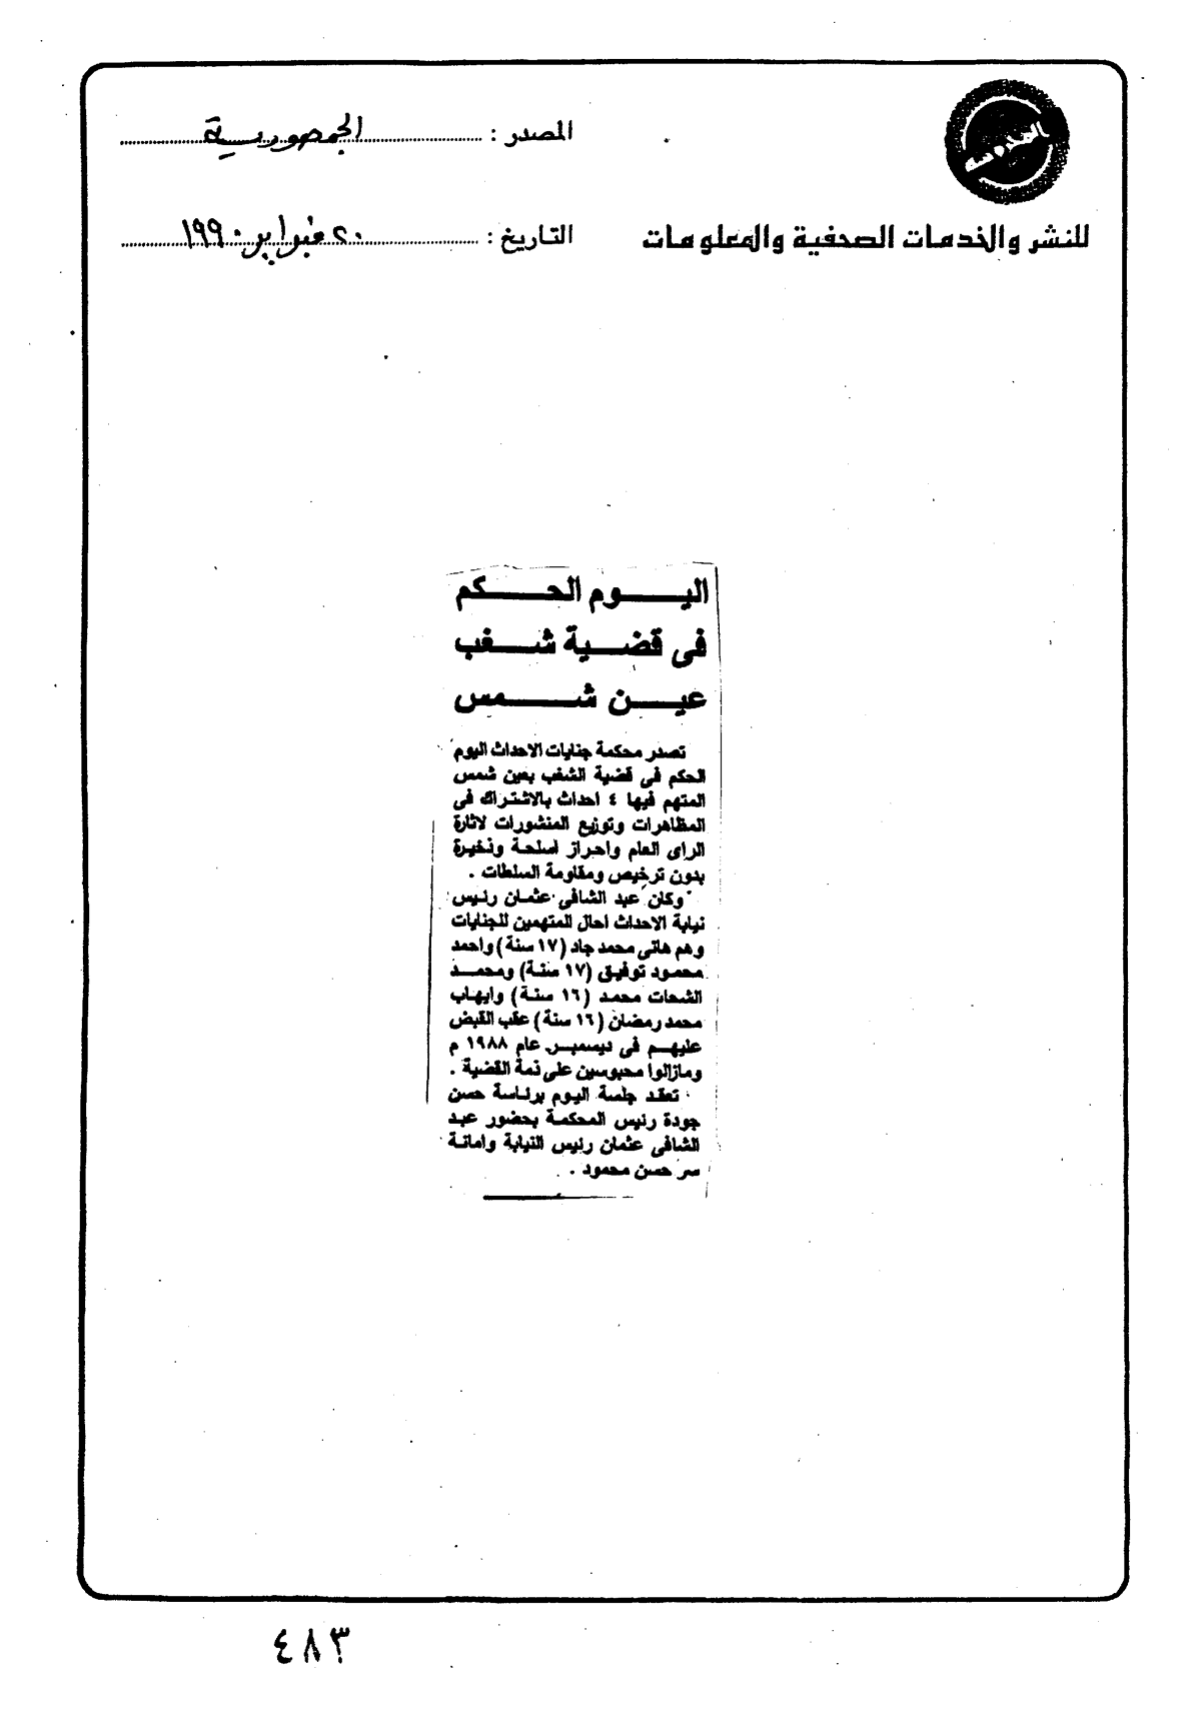 المصدر : الجمهورية
للنشر والخدمات الصحفية والمعلومات
التاريخ : ٢٠ فبراير ١٩٩٠
اليوم الحكم
فى قضية شغب
عين شمس
تصدر محكمة جنايات الاحداث اليوم
الحكم فى قضية الشغب بعين شمس
المتهم فيها ٤ احداث بالاشتراك فى
المظاهرات وتوزيع المنشورات لاثارة
الراى العام واحراز اسلحة وذخيرة
بدون ترخيص ومقاومة السلطات .
وكان عبد الشافى عثمان رئيس
نيابة الاحداث احال المتهمين للجنايات
وهم هانى محمد جاد (١٧ سنة) واحمد
محمود توفيق (١٧ سنة) ومحمد
الشحات محمد (١٦ سنة) وايهاب
محمد رمضان (١٦ سنة) عقب القبض
عليهم فى ديسمبر عام ١٩٨٨ م
ومازالوا محبوسين على ذمة القضية .
تعقد جلسة اليوم برئاسة حسن
جودة رئيس المحكمة بحضور عبد
الشافى عثمان رئيس النيابة وامانة
سر حسن محمود .
٤٨٣